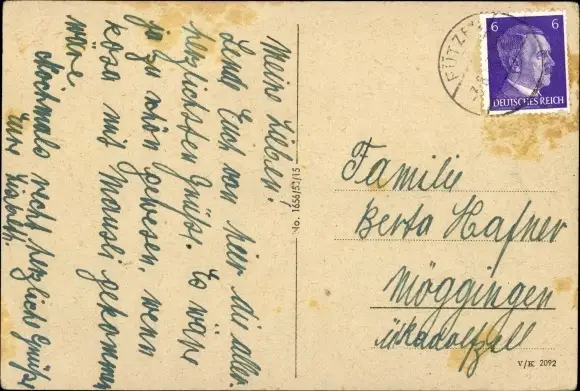 Meine Lieben!
Sende Euch von hier die aller-
herzlichsten Grüße. Es wäre
ja zu schön gewesen, wenn
Rösa mit Mausi gekommen
wäre
Nochmals recht herzliche Grüße
Eure
No. 1656/52/15
6 6
DEUTSCHES REICH
Familie
Berta Hafner
Möggingen
ü. Radolfzell
V/K 2092